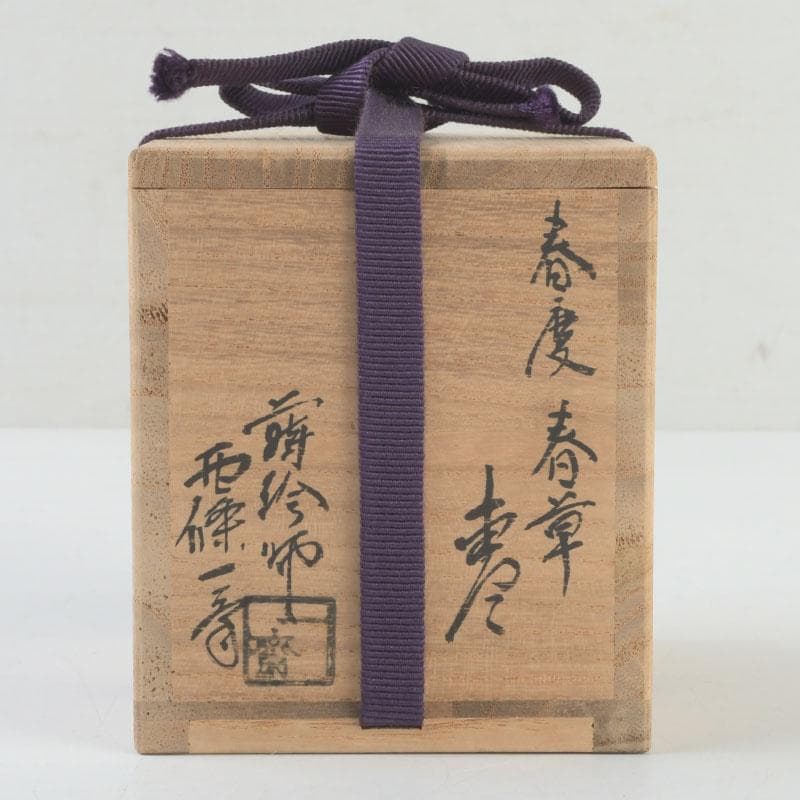 春慶 春草
棗
蒔絵師
西條一斎